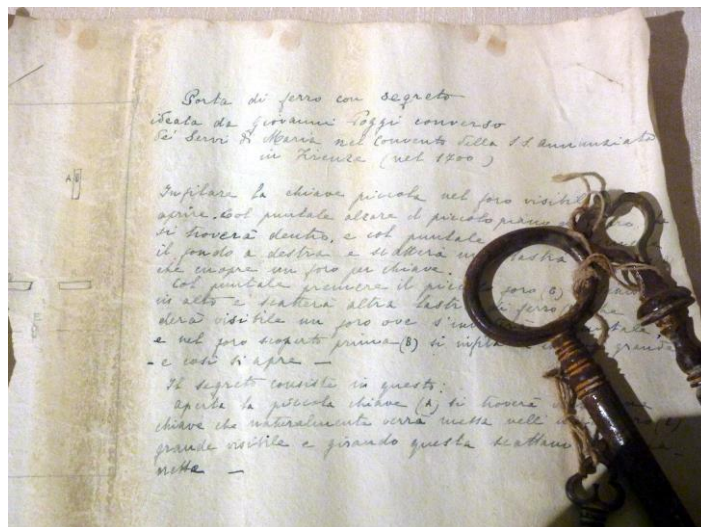 Porta di ferro con segreto
ideata da Giovanni Poggi converso
dei Servi di Maria nel Convento della SS. Annunziata
in Firenze (nel 1700)
Infilare la chiave piccola nel foro visibile
aprire. Col puntale alzare il piccolo piano
si troverà dentro, e col puntale
il fondo a destra e scatterà lastra
che cuopre un foro per chiave.
Col puntale premere il piccolo foro (C)
in alto e scatterà altra lastra di ferro
derà visibile un foro ove
e nel foro scoperto prima (B) si grande
- e così si apre -
Il segreto consiste in questo:
aperta la piccola chiave (A) si troverà
chiave che naturalmente verrà messa nell'
grande visibile e girando questa scattano
-
A B
E